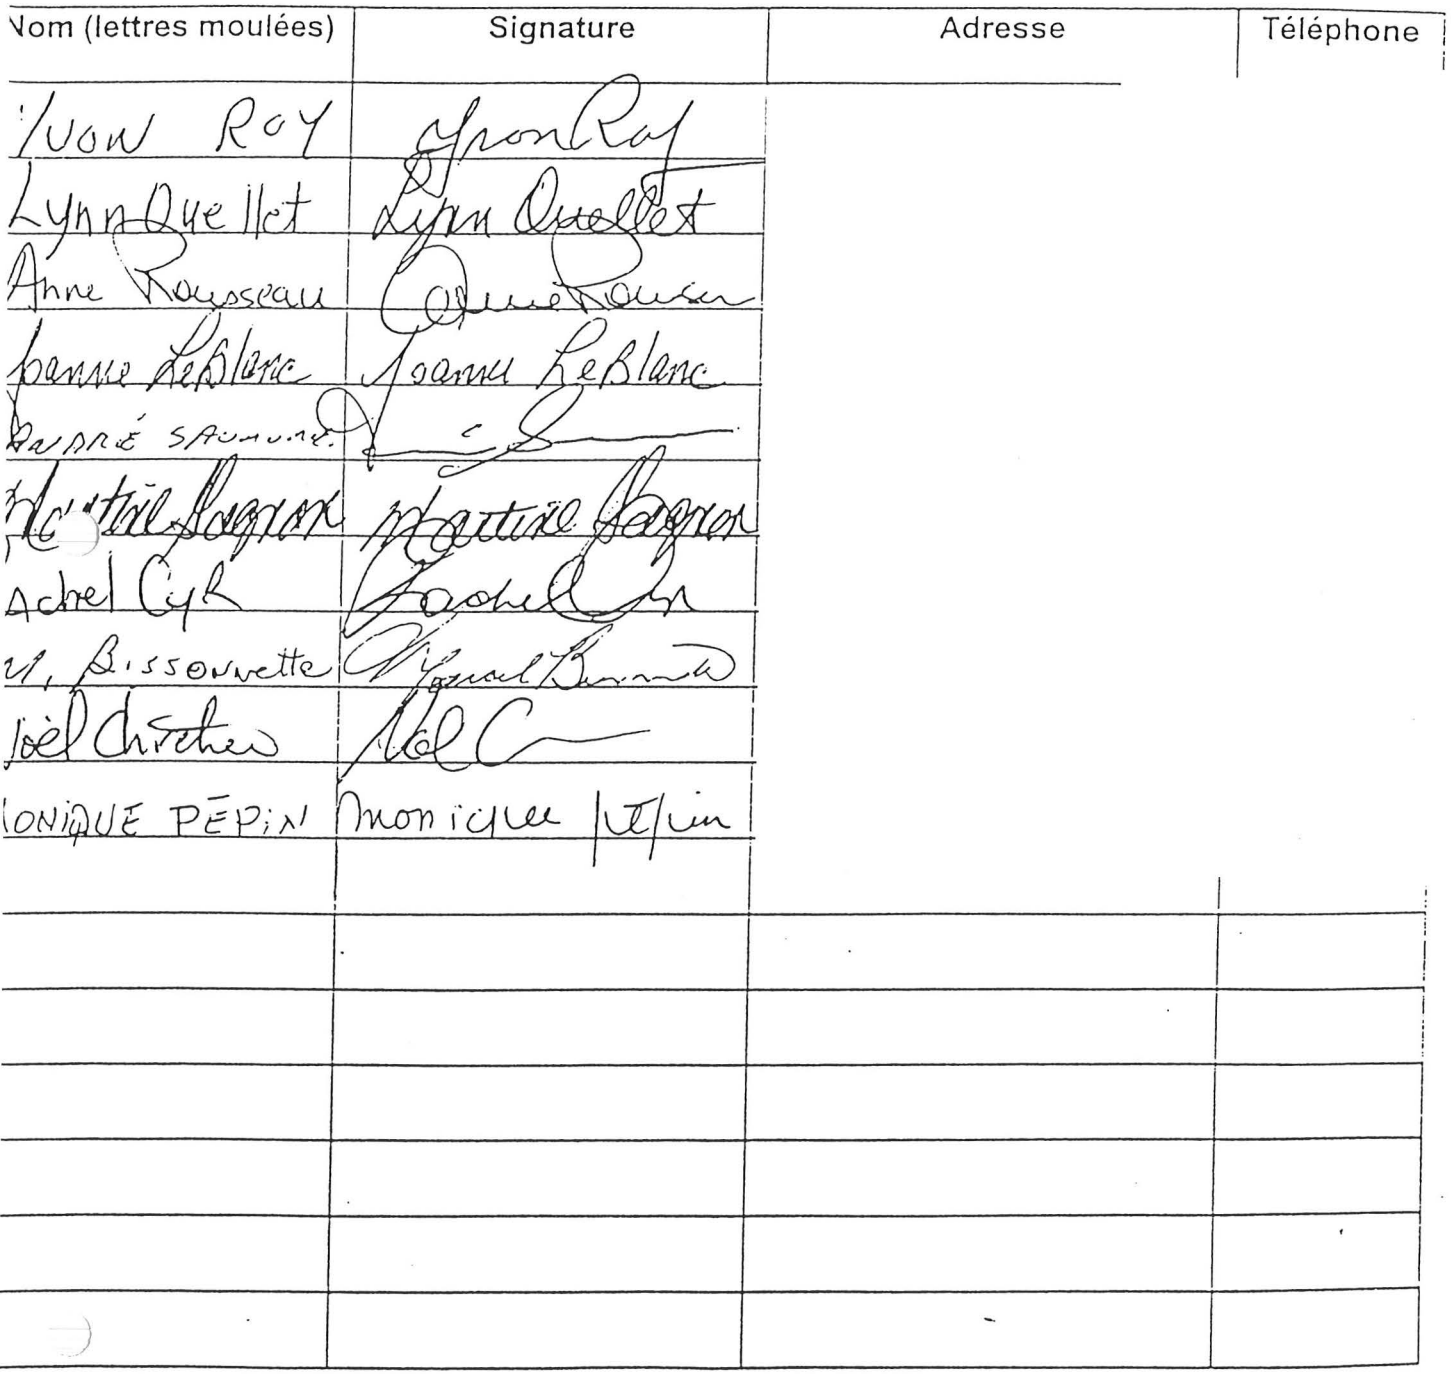 Nom (lettres moulées) Signature Adresse Téléphone
Yvon Roy Yvon Roy
Lynn Ouellet Lynn Ouellet
Anne Rousseau Anne Rousseau
Joanne LeBlanc Joanne LeBlanc
ANDRÉ SAUMURE
Martine Gagnon Martine Gagnon
Rachel Cyr Rachel Cyr
M. Bissonnette
Noël Chrétien Noël C
MONIQUE PÉPIN Monique Pépin